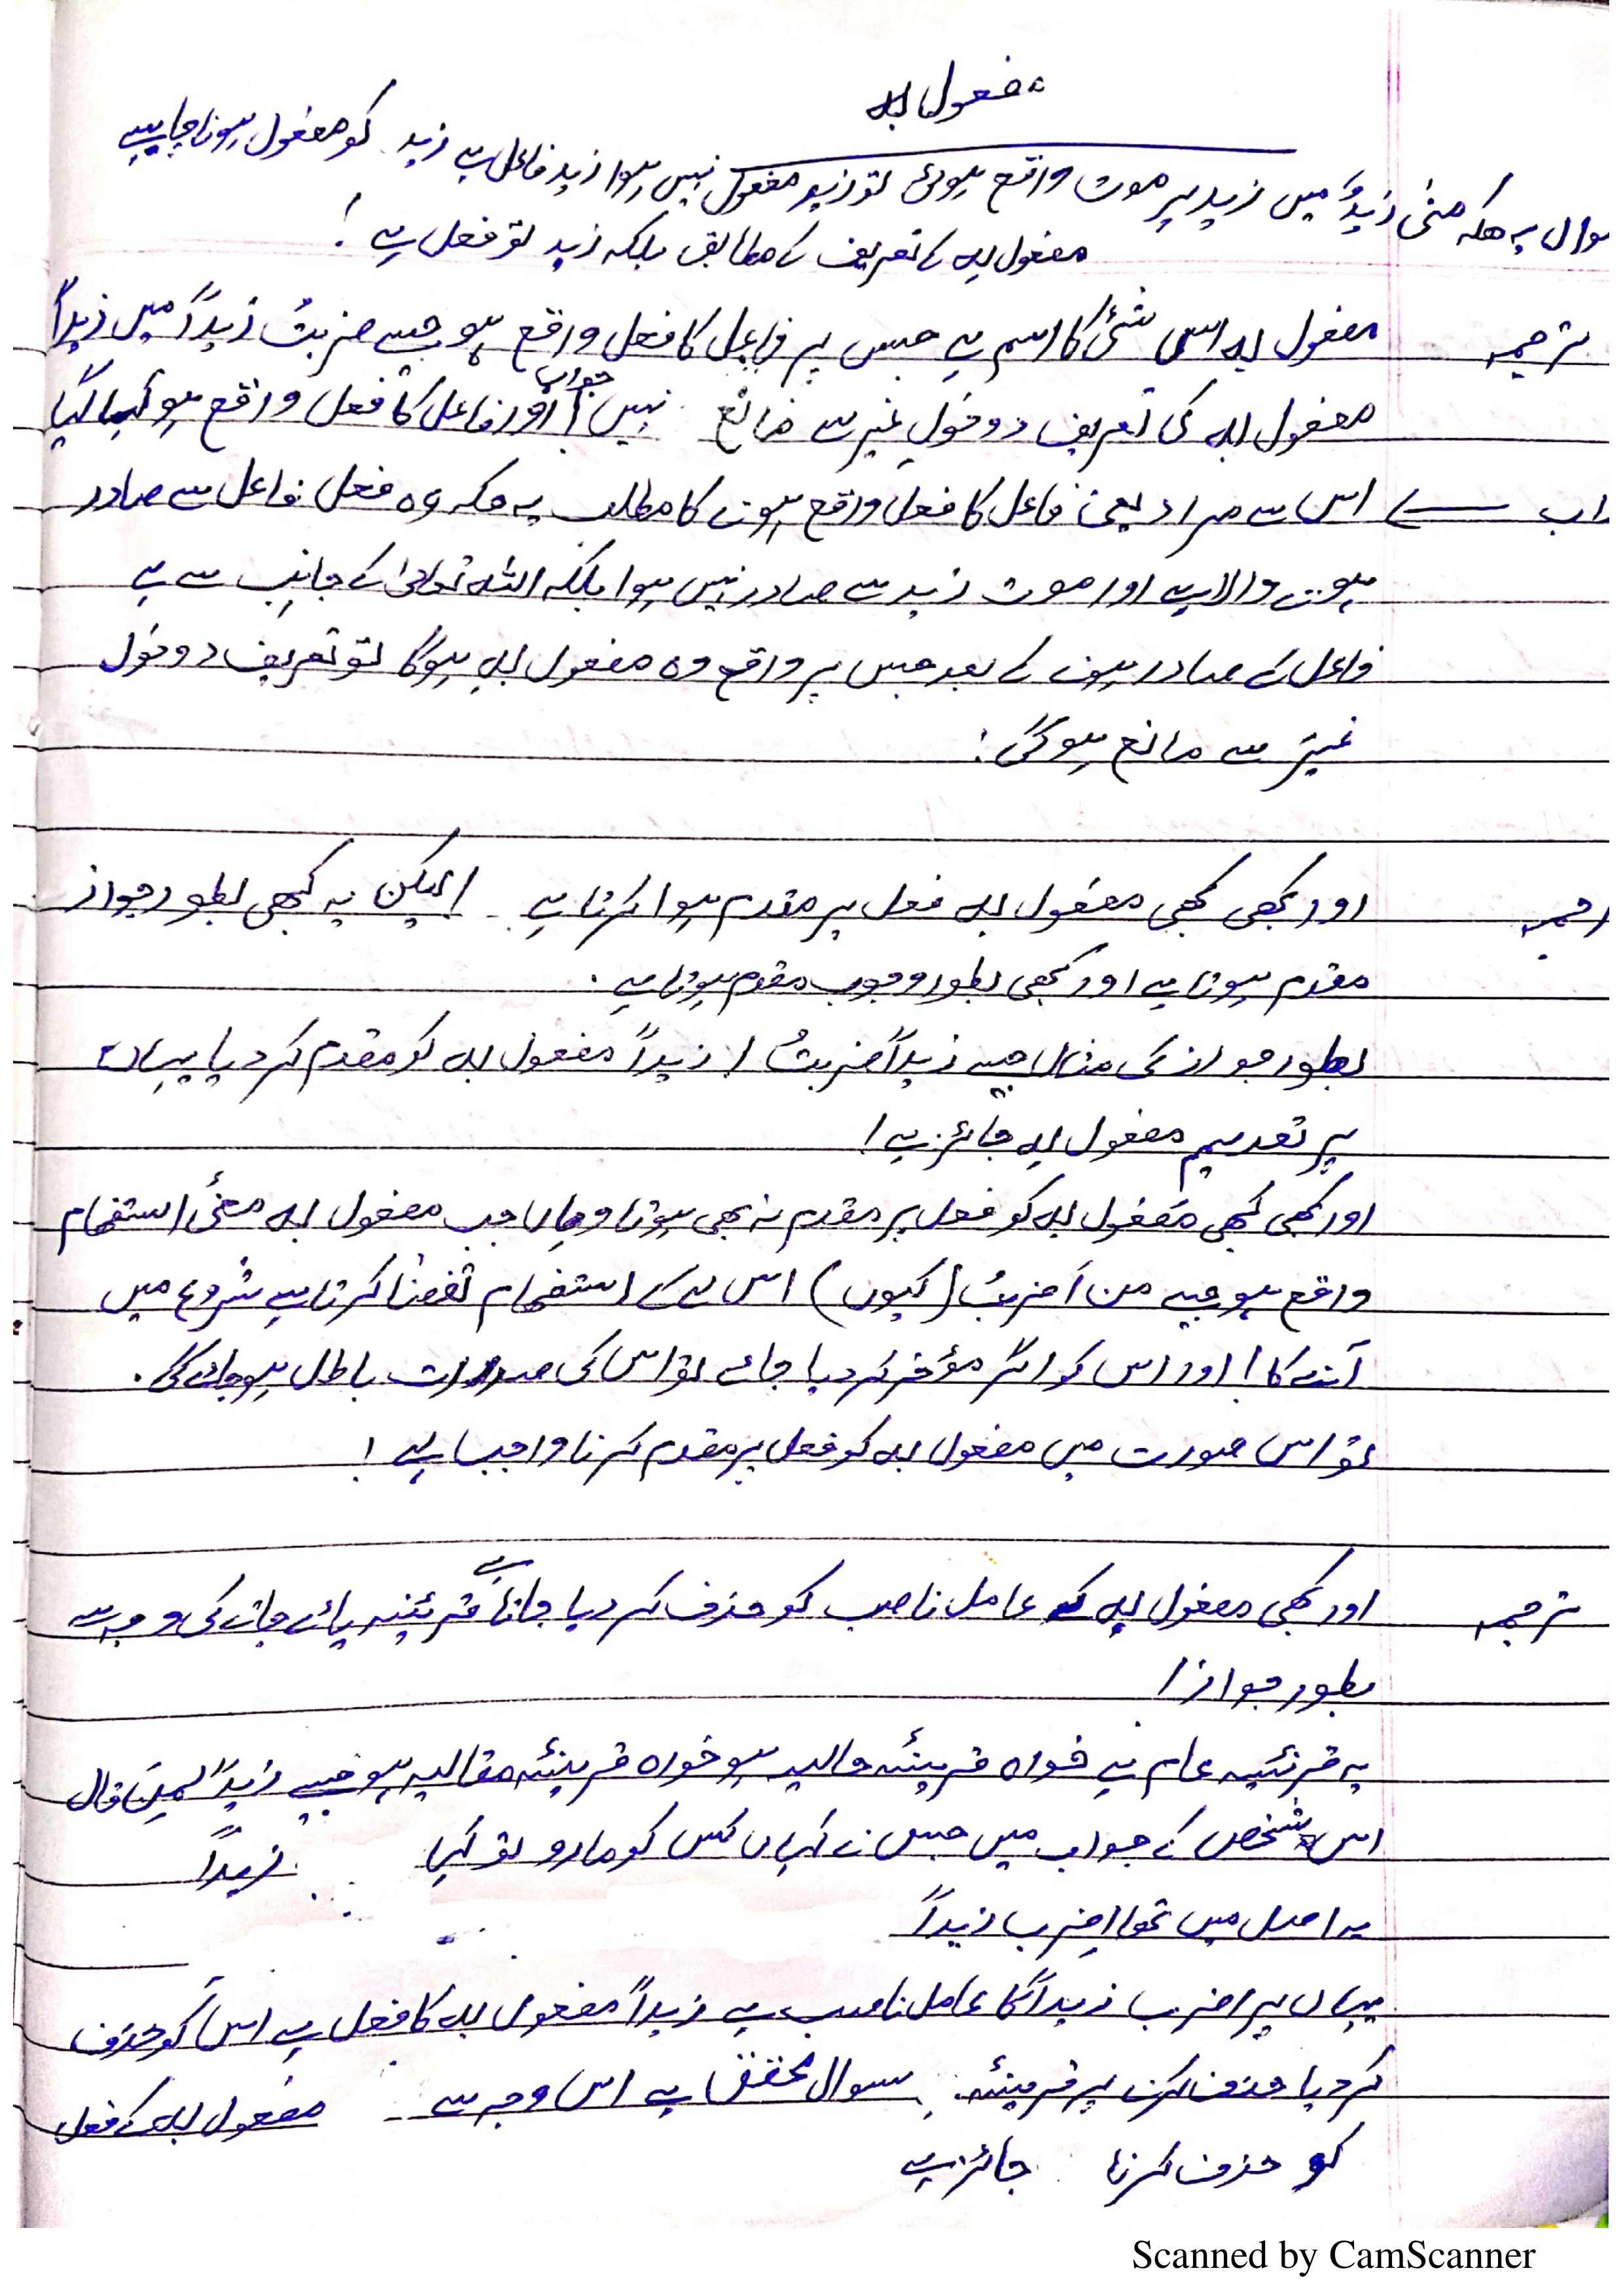 مفعول بہ
سوال یہ ھیکہ منیٰ زیدٌ میں زید پر موت واقع ہوئی تو زید مفعول نہیں ہوا زید فاعل ہے زید کو مفعول ہونا چاہیے
مفعول بہ کے تعریف کے مطابق بلکہ زید تو فعل ہے !
ترجمہ مفعول بہ اسی شئ کا اسم ہے جس پر فاعل کا فعل واقع ہو جیسے ضربتُ زیداً میں زیداً
مفعول بہ کی تعریف دوخول غیر سے مانع نہیں ! جواب اور فاعل کا فعل واقع ہو گیا
اس سے مراد یعنی فاعل کا فعل واقع ہونے کا مطلب یہ ھیکہ وہ فعل فاعل سے صادر
ہونے والا ہے اور موت زید سے صادر نہیں ہوا بلکہ اللہ تعالیٰ کے جانب سے ہے
فاعل کے صادر ہونے کے بعد جس پر واقع وہ مفعول بہ ہوگا تو تعریف دوخول
غیر سے مانع ہو گئ !
ترجمہ اور کبھی کبھی مفعول بہ فعل پر مقدم ہوا کرتا ہے ۔ لیکن یہ کبھی بطور جواز
مقدم ہوتا ہے اور کبھی بطور وجوب مقدم ہوتا ہے ۔
بطور جواز کی مثال جیسے زیداً ضربتُ / زیداً مفعول بہ کو مقدم کر دیا یہاں
پر تقدیم مفعول بہ جائز ہے !
اور کبھی کبھی مفعول بہ کو فعل پر مقدم نہ بھی ہوتا وہاں جب مفعول بہ معنیٔ استفھام
واقع ہو جیسے من أضربُ (کیوں) اس لے کے استفھام تقضا کرتا ہے شروع میں
آنے کا ! اور اس کو اگر مؤخر کر دیا جائے تو اس کی صدارت باطل ہو جائے گی ۔
تو اس صورت میں مفعول بہ کو فعل پر مقدم کرنا واجب ہے !
ترجمہ اور کبھی مفعول بہ کے عامل ناصب کو حذف کر دیا جاتا ہے قرئینہ پائے جانے کی وجہ سے
بطور جواز !
یہ قرئنیہ عام ہے خواہ قرینئہ حالیہ ہو خواہ قرینئہ مقالیہ ہو جیسے زیداً لمن قال
اس شخص کے جواب میں جس نے کہاں کس کو مارو تو کہا زیداً
یہ اصل میں تھا اضرب زیداً
یہاں پر اضرب زیداً کا عامل ناصب ہے زیداً مفعول بہ کا فعل ہے اس کو حذف
کر دیا حذف کرنے پر قرینئہ سوال محقق ہے اس وجہ سے مفعول بہ کے فعل
کو حذف کرنا جائز ہے
Scanned by CamScanner